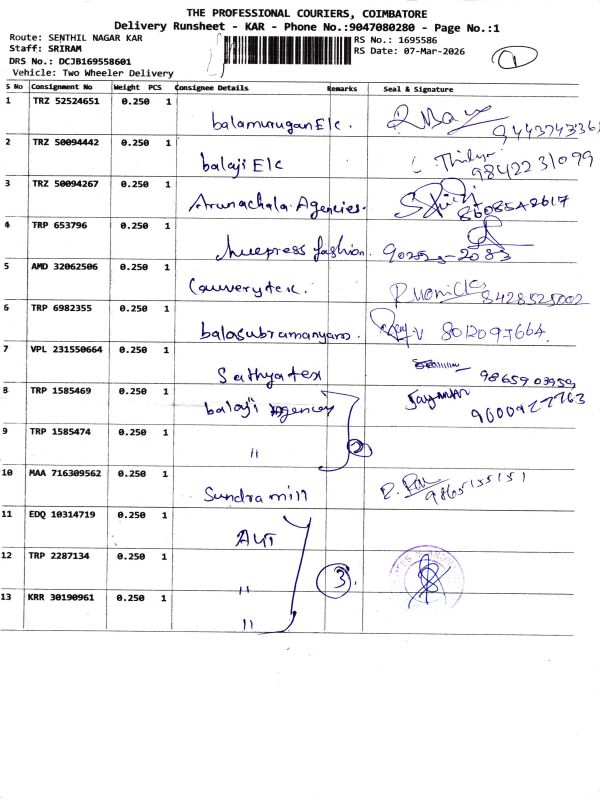 THE PROFESSIONAL COURIERS, COIMBATORE
Delivery Runsheet - KAR - Phone No.:9047080280 - Page No.:1
Route: SENTHIL NAGAR KAR
Staff: SRIRAM
DRS No.: DCJB169558601
Vehicle: Two Wheeler Delivery
RS No.: 1695586
RS Date: 07-Mar-2026
1
S No Consignment No Weight PCS Consignee Details Remarks Seal & Signature
1 TRZ 52524651 0.250 1 balamurugan Elc.
2 TRZ 50094442 0.250 1 balaji Elc 98422 31099
3 TRZ 50094267 0.250 1 Arunachala Agencies.
4 TRP 653796 0.250 1 fashion.
5 AMD 32062506 0.250 1 Cauverytex. 8428525002
6 TRP 6982355 0.250 1 balasubramanyam. 8012097664.
7 VPL 231550664 0.250 1 Sathyatex
8 TRP 1585469 0.250 1 balaji agency
9 TRP 1585474 0.250 1 " 2
10 MAA 716309562 0.250 1 Sundra mill 9865155151
11 EDQ 10314719 0.250 1
12 TRP 2287134 0.250 1 " 3.
13 KRR 30190961 0.250 1 "